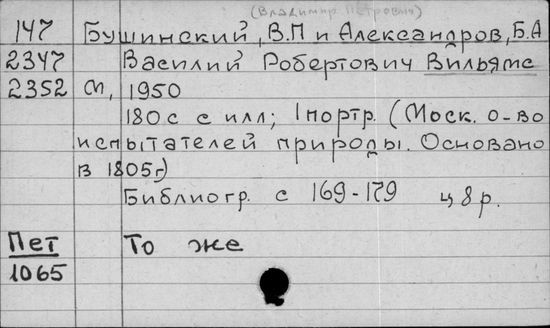 (Владимир Петрович)
147 Бушинский, В.П и Александров, Б.А
2347 Василий Робертович Вильямс
2352 М, 1950
180 с с илл; 1 портр. (Моск. о-во
испытателей природы. Основано
в 1805г)
Библиогр. с 169-179 ц 8 р.
Пет То же
1065